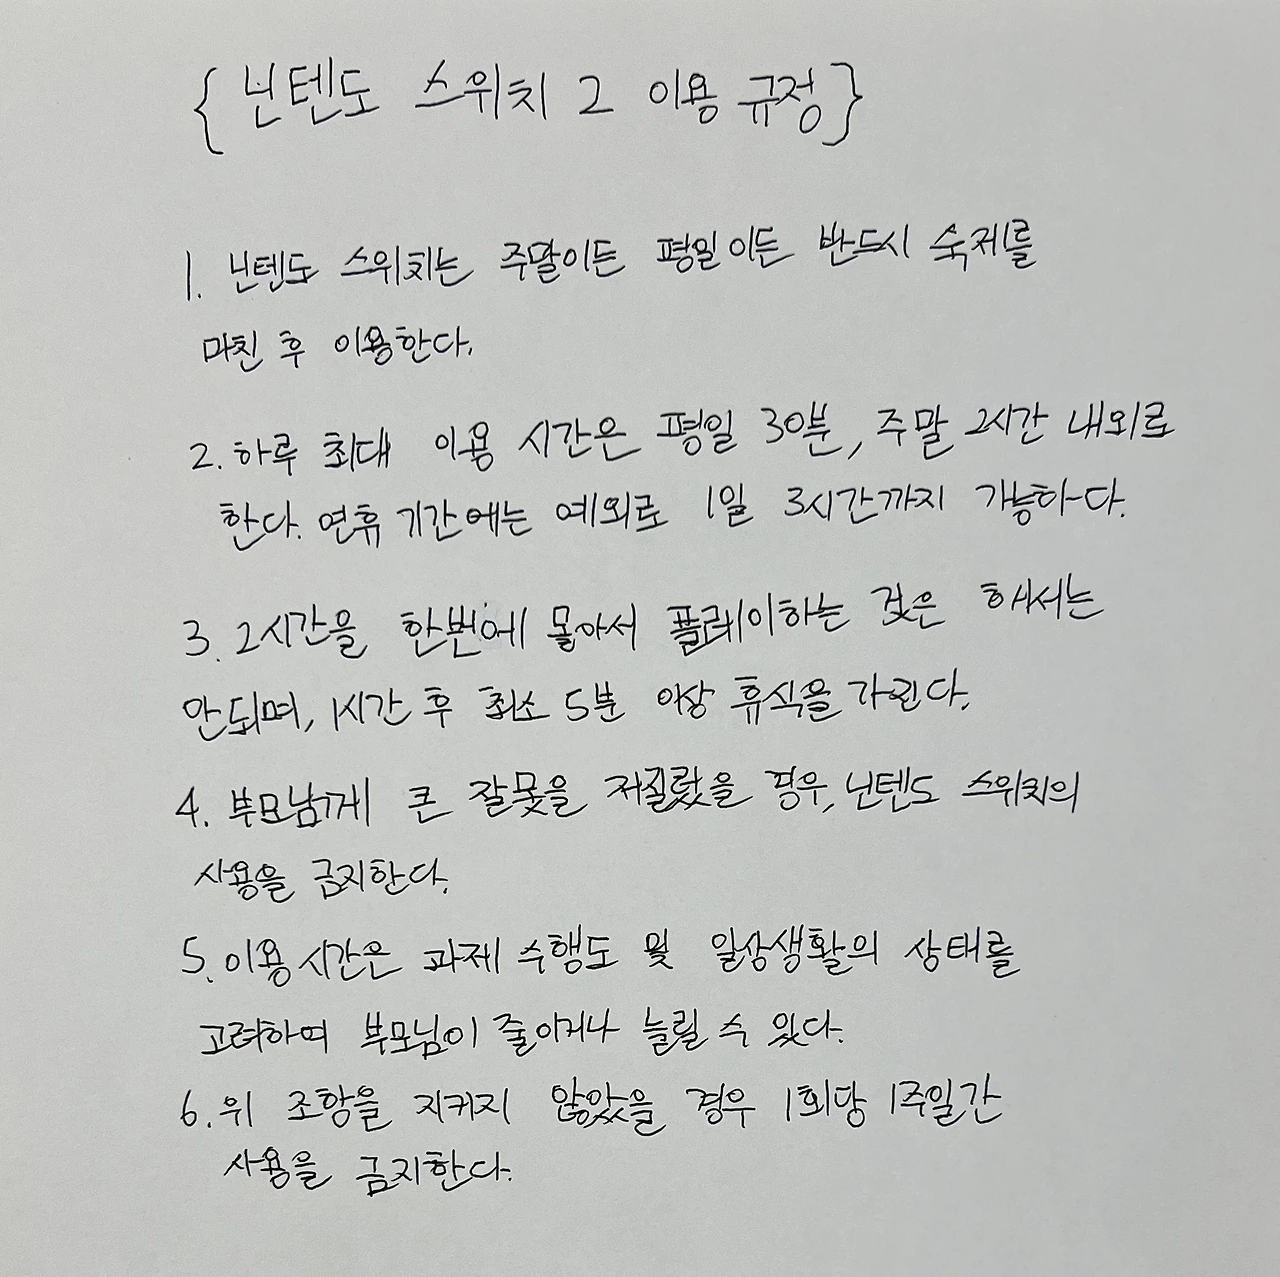 { 닌텐도 스위치 2 이용 규정 }
1. 닌텐도 스위치는 주말이든 평일이든 반드시 숙제를
마친 후 이용한다.
2. 하루 최대 이용 시간은 평일 30분, 주말 2시간 내외로
한다. 연휴 기간에는 예외로 1일 3시간까지 가능하다.
3. 2시간을 한번에 몰아서 플레이하는 것은 해서는
안되며, 1시간 후 최소 5분 이상 휴식을 가진다.
4. 부모님께 큰 잘못을 저질렀을 경우, 닌텐도 스위치의
사용을 금지한다.
5. 이용 시간은 과제 수행도 및 일상생활의 상태를
고려하여 부모님이 줄이거나 늘릴 수 있다.
6. 위 조항을 지키지 않았을 경우 1회당 1주일간
사용을 금지한다.